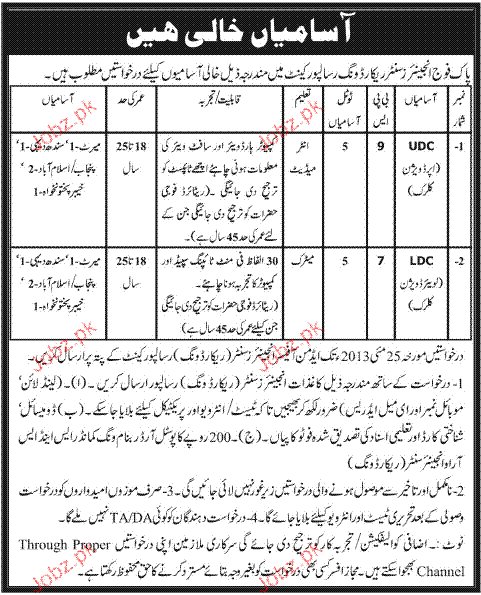 آسامیاں خالی ہیں
پاک فوج انجینئرز سنٹر ریکارڈ ونگ رسالپور کینٹ میں مندرجہ ذیل خالی آسامیوں کیلئے درخواستیں مطلوب ہیں۔
نمبر شمار
آسامیاں
بی پی ایس
ٹوٹل آسامیاں
تعلیم
قابلیت/تجربہ
عمر کی حد
آسامیاں
1-
UDC
(اپر ڈویژن
کلرک)
9
5
انٹر
میڈیٹ
کمپیوٹر ہارڈویئر اور سافٹ ویئر کی
معلومات ہونی چاہئے اچھے ٹائپسٹ کو
ترجیح دی جائیگی۔ (ریٹائرڈ فوجی
حضرات کو ترجیح دی جائیگی جن کے
لئے عمر کی حد 45 سال ہے)
18 تا 25
سال
میرٹ-1، سندھ دیہی-1،
پنجاب/اسلام آباد-2،
خیبر پختونخواہ-1
2-
LDC
(لوئیر ڈویژن
کلرک)
7
5
میٹرک
30 الفاظ فی منٹ ٹائپنگ سپیڈ اور
کمپیوٹر کا تجربہ ہونا چاہئے۔
(ریٹائرڈ فوجی حضرات کو ترجیح دی جائیگی
جن کیلئے عمر کی حد 45 سال ہے)
18 تا 25
سال
میرٹ-1، سندھ دیہی-1،
پنجاب/اسلام آباد-2،
خیبر پختونخواہ-1
درخواستیں مورخہ 25 مئی 2013ء تک ایڈمن آفیسر انجینئرز سنٹر (ریکارڈ ونگ) رسالپور کینٹ کے پتہ پر ارسال کریں۔
1- درخواست کے ساتھ مندرجہ ذیل کاغذات انجینئرز سنٹر (ریکارڈ ونگ) رسالپور ارسال کریں۔ (ا)۔ (لینڈ لائن،
موبائل نمبر اور ای میل ایڈریس) ضرور لکھ کر بھیجیں تاکہ ٹیسٹ/انٹرویو اور پریکٹیکل کیلئے بلایا جاسکے۔ (ب) ڈومیسائل،
شناختی کارڈ اور تعلیمی اسناد کی تصدیق شدہ فوٹو کاپیاں۔ (ج)۔ 200 روپے کا پوسٹل آرڈر بنام ونگ کمانڈر ایس اینڈ ایس
آر او انجینئرز سنٹر (ریکارڈ ونگ)
2- نامکمل اور تاخیر سے موصول ہونے والی درخواستیں زیر غور نہیں لائی جائیں گی۔ 3- صرف موزوں امیدواروں کو درخواست
وصولی کے بعد تحریری ٹیسٹ اور انٹرویو کیلئے بلایا جائے گا۔ 4- درخواست دہندگان کو کوئی TA/DA نہیں ملے گا۔
نوٹ:۔ اضافی کوالیفکیشن/تجربہ کار کو ترجیح دی جائے گی سرکاری ملازمین اپنی درخواستیں Through Proper
Channel بھجوا سکتے ہیں۔ مجاز افسر کسی بھی درخواست کو بغیر وجہ بتائے مسترد کرنے کا حق محفوظ رکھتا ہے۔
Jobz.pk
Jobz.pk
Jobz.pk
Jobz.pk
Jobz.pk
Jobz.pk